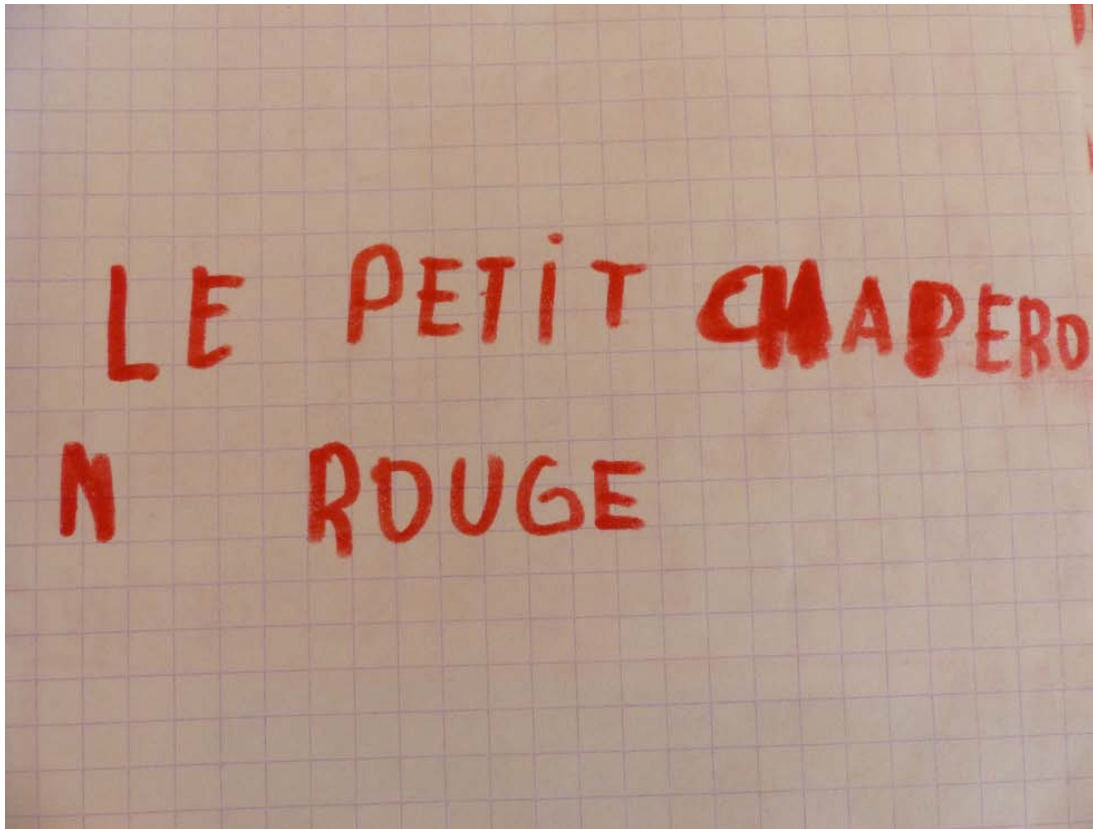 LE PETiT CHAPERO
N ROUGE